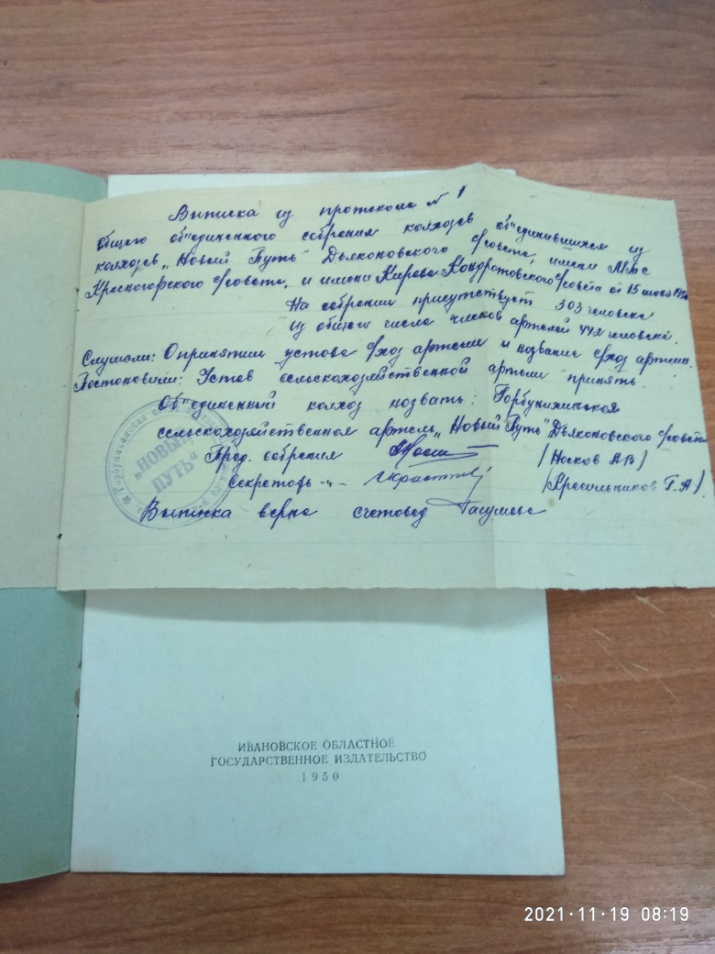 Выписка из протокола № 1
общего об"единенного собрения колхозов об"единившихся из
колхозов „Новый Путь" Дьяконовского с/совета, имени МТС
Красногорского с/совета, и имени Кирова Кондратовского с/совета от 15 1950
На собрении присутствует 303 человека
из общего числа членов артелей 442 человека.
Слушали: О принятии устава с/хоз артели и название с/хоз артели.
Постоновили: Устав сельскохозяйственной артели принять
Об"единенный колхоз назвать: Горбунихинская
сельскохозяйственноя артель „Новый Путь" Дьяконовского с/совета
Пред. собрения /Носков А.В/
Секретарь -„- /Кресильников Г.А/
„НОВЫЙ
ПУТЬ"
Выписка верна счетовод
ИВАНОВСКОЕ ОБЛАСТНОЕ
ГОСУДАРСТВЕННОЕ ИЗДАТЕЛЬСТВО
1950
2021·11·19 08:19